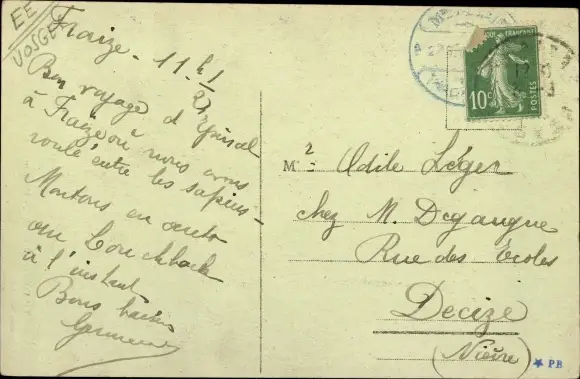 EE
VOSGES
Fraize - 11 h 1/2
Bon voyage d'Epinal
à Fraize où nous avons
roulé entre les sapins -
Montons en auto
au
à l'instant
Bons baisers
Germaine
Mlle Odile Léger
chez M. Degangne
Rue des Ecoles
Decize
(Nièvre)
10c
POSTES
PB